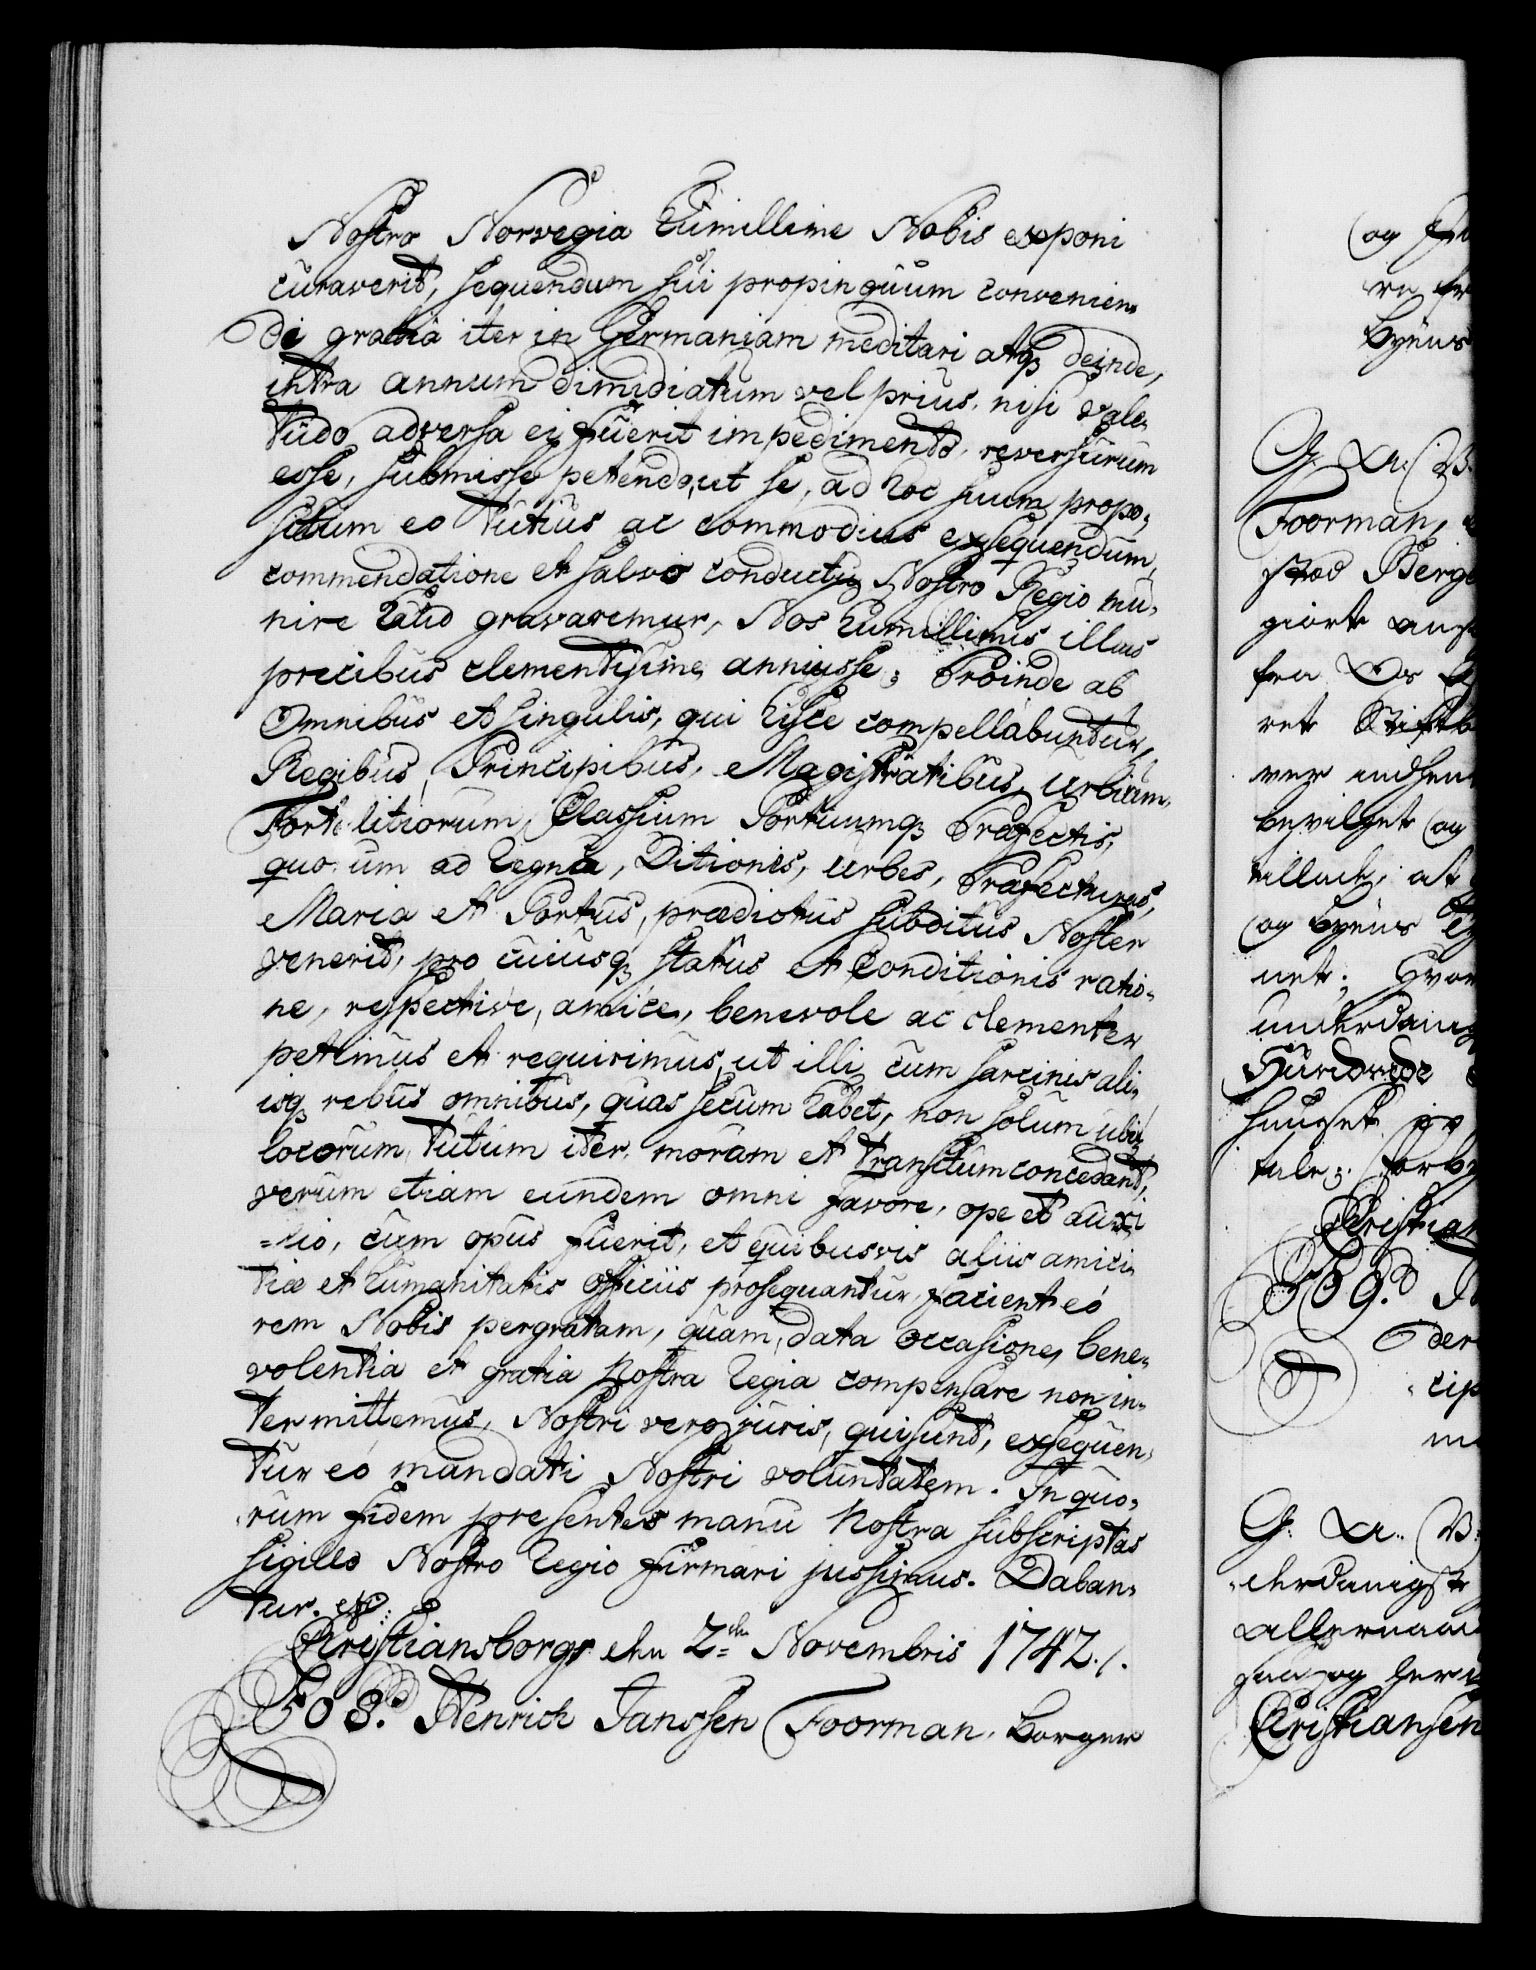 Nostro Norvegia humillime Nobis exponi
curaverit, sequendum sui propinquum convenien-
di gratia iter in Germaniam meditari atq deinde,
intra annum dimidiatum vel prius, nisi vale-
tudo adversa ei fuerit impedimento, reversurum
esse, submisse petendo, ut se, ad hoc suum propo-
situm eo tutius ac commodius exsequendum,
commendatione et salvo conductu Nostro Regio mu-
nire haud gravaremur, Nos humillimis illius
precibus clementissime annuisse; Proinde ab
Omnibus et singulis, qui hisce compellabuntur,
Regibus, Principibus, Magistratibus, Urbium,
Fortalitiorum, Classium Portuumq Præfectis,
quorum ad Regna, Ditiones, Urbes, Præfecturas,
Maria et Portus, prædictus subditus Noster
venerit, pro cuiusq status et conditionis ratio-
ne, respective, amice, benevole ac clementer
petimus et requirimus, ut illi cum sarcinis ali-
isq rebus omnibus, quas secum habet, non solum ubiq
locorum tutum iter, moram et transitum concedant,
verum etiam eundem omni favore, ope et auxi-
-lio, cum opus fuerit, et quibusvis aliis amici-
tiæ et humanitatis officiis prosequantur, facient eo
rem Nobis pergratam, quam, data occasione, bene-
volentia et gratia Nostra Regia compensare non in-
termittemus, Nostri vero juris, qui sunt, exsequen-
tur eo mandati Nostri voluntatem. In quo-
rum fidem præsentes manu Nostra subscriptas
sigillo Nostro Regio firmari jussimus. Daban-
tur. etc.
Christiansborg den 2den Novembris 1742./.
508. Henrich Janssen Foorman, borger
(og
byens
G: A: V:
Foorman,
stæd Berge
giort
fra Os
ret Stiftb
bevilget og
tilladt, at
(og byens
net; Hvor
Hundrede
hauget
tale; forby
Christian
509.
der
cip
G: A: V:
Christiansen